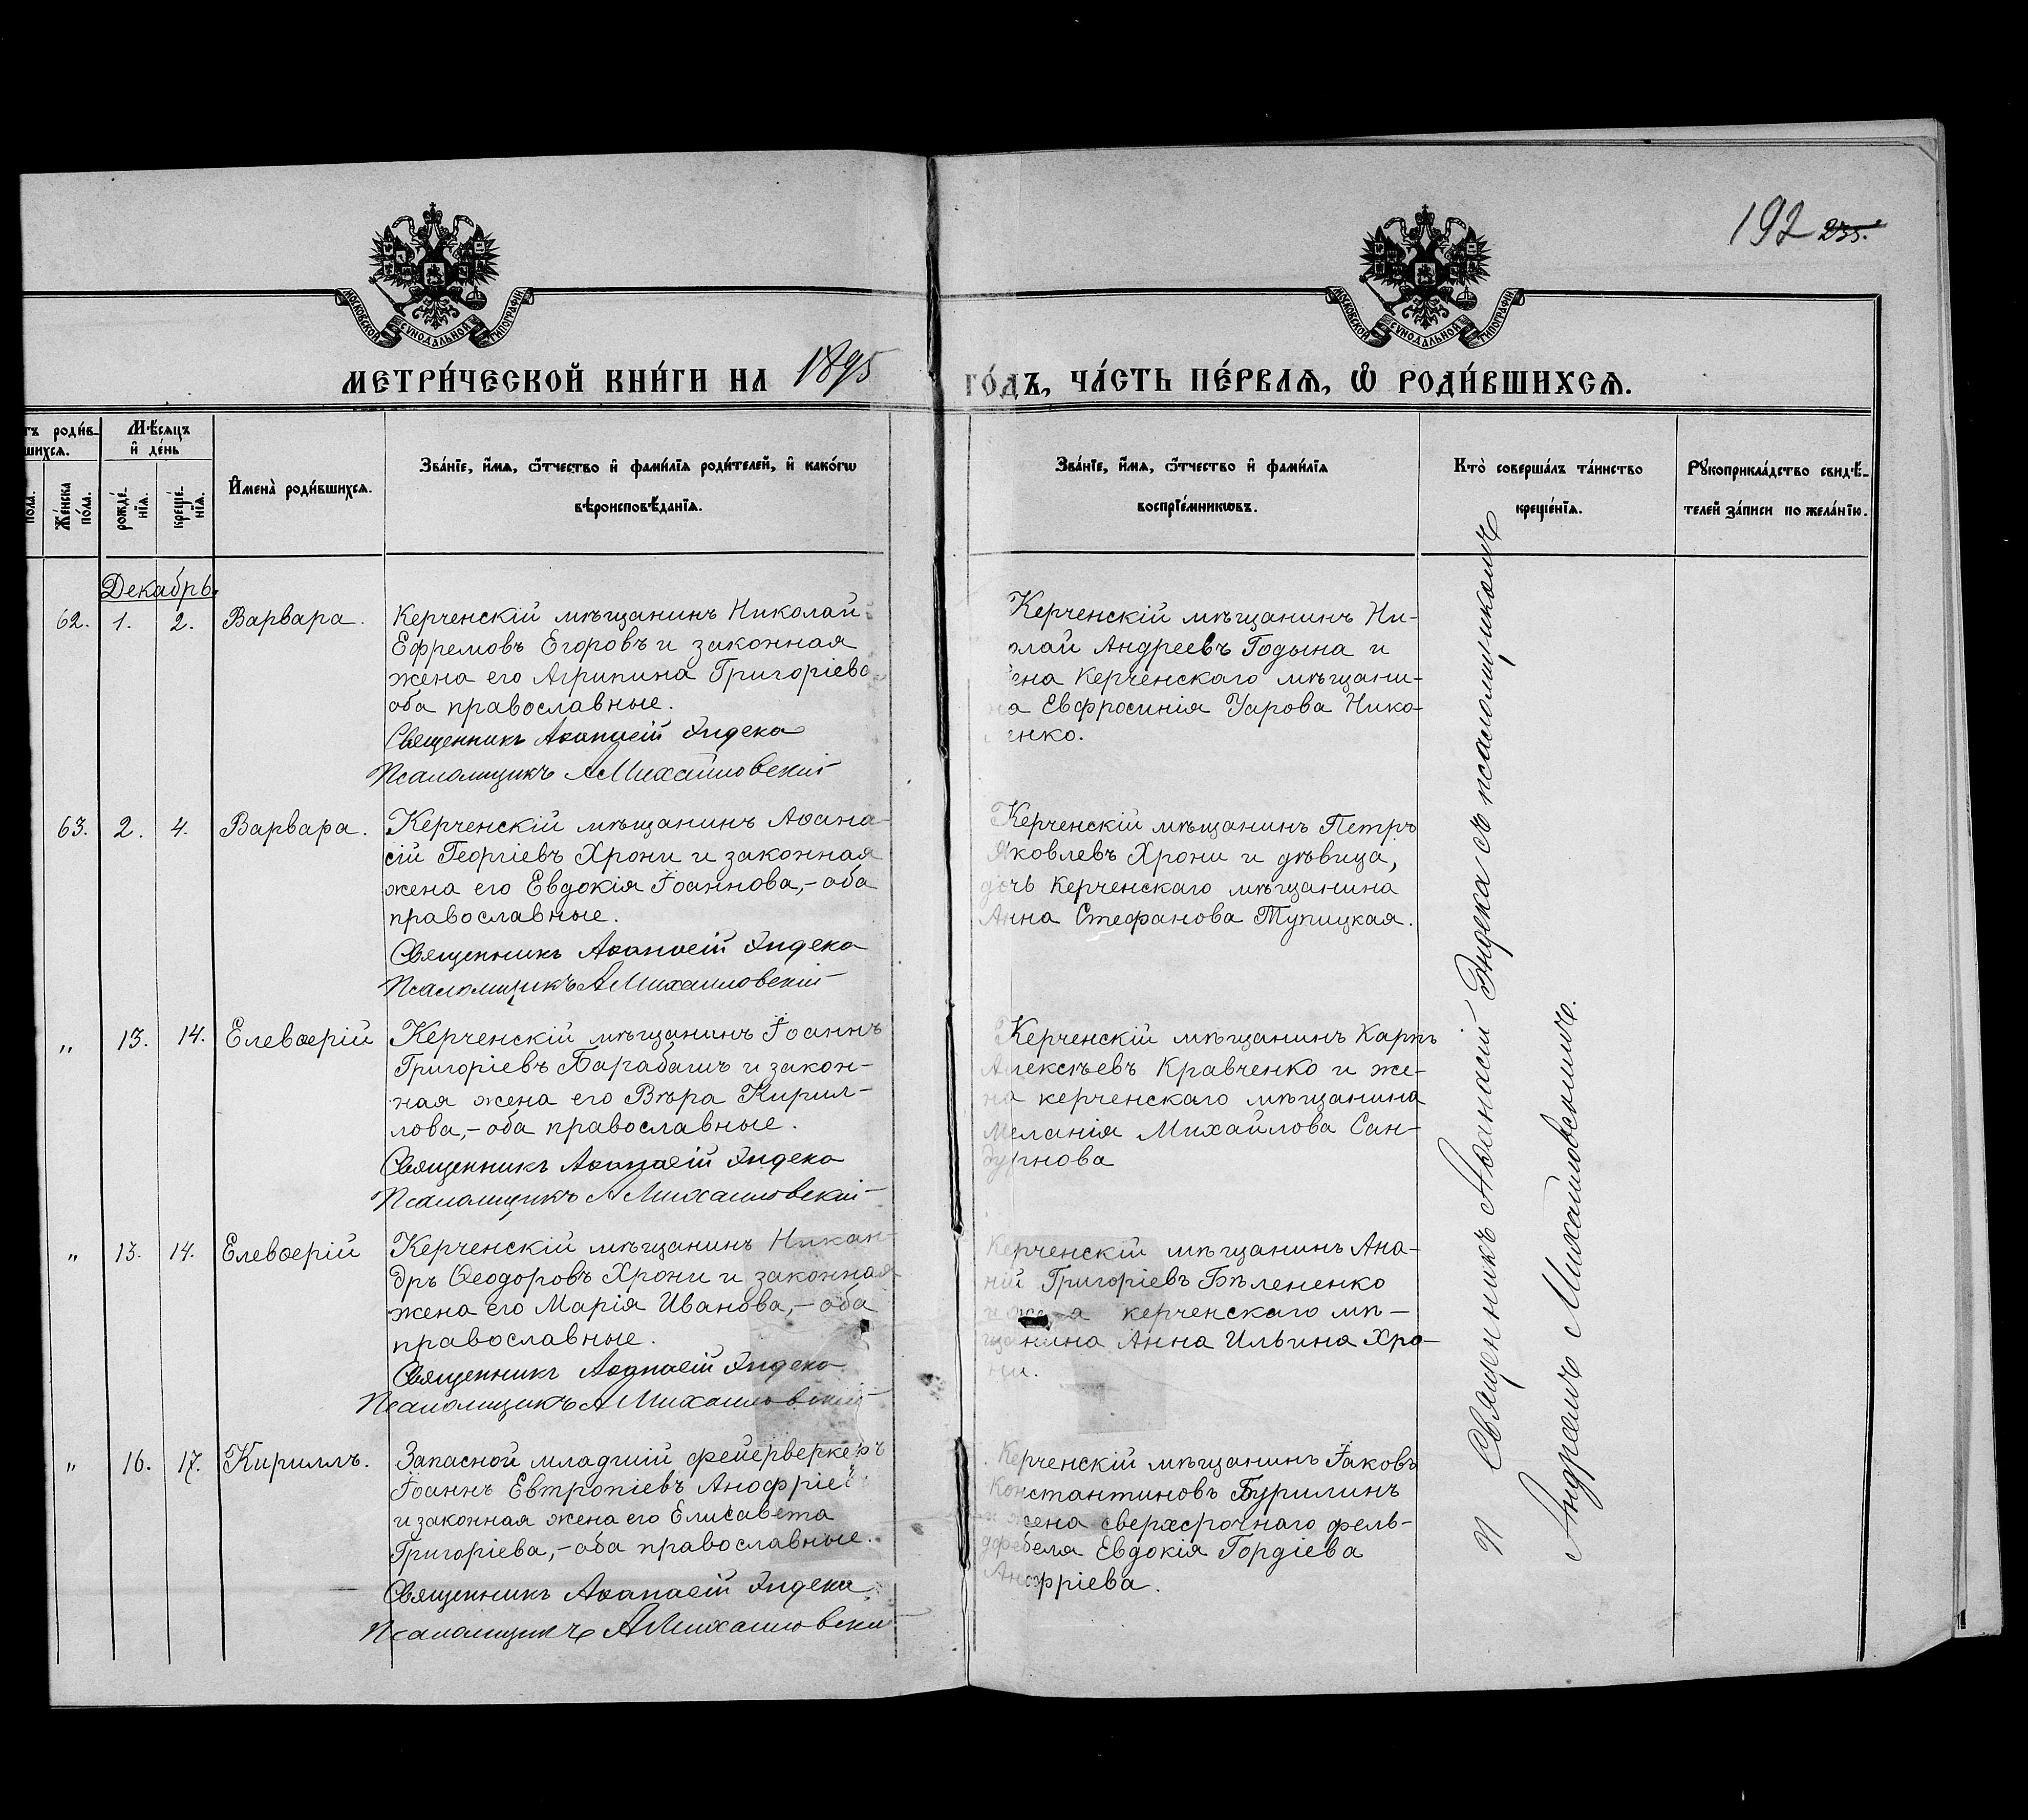 192 235.
МОСКОВСКОЙ СУНОДАЛЬНОЙ ТИПОГРАФІИ
МОСКОВСКОЙ СУНОДАЛЬНОЙ ТИПОГРАФІИ
МЕТРИ́ЧЕСКОЙ КНИ́ГИ НА 1895 ГО́ДЪ, ЧА́СТЬ ПЕ́РВАѦ, Ѽ РОДИ́ВШИХСѦ.
тъ роди́в-
шихсѧ.
пола.
Же́нска по́ла.
Мѣ́сѧцъ
и҆ де́нь
рожде́-
нїѧ.
креще́-
нїѧ.
И҆мена̀ роди́вшихсѧ.
Зва́нїе, и҆́мѧ, ѻ҆́тчество и҆ фами́лїѧ роди́телей, и҆ како́гѡ
вѣроисповѣ́данїѧ.
Зва́нїе, и҆́мѧ, ѻ҆́тчество и҆ фами́лїѧ
воспрїе́мникѡвъ.
Кто̀ соверша́лъ та́инство
креще́нїѧ.
Рꙋкоприкла́дство свидѣ́-
телей за́писи по жела́нїю.
Декабрь.
62. 1. 2. Варвара.
Керченскій мѣщанинъ Николай
Ефремовъ Егоровъ и законная
жена его Агрипина Григоріева
оба православные.
Священникъ Аѳанасій Эндека
Псаломщикъ А Михайловскій
Керченскій мѣщанинъ Ни-
колай Андреевъ Годына и
жена Керченскаго мѣщани-
на Евфросинія Уарова Нико-
енко.
63. 2. 4. Варвара.
Керченскій мѣщанинъ Аѳана-
сій Георгіевъ Хрони и законная
жена его Евдокія Іоаннова,- оба
православные.
Священникъ Аѳанасій Эндека
Псаломщикъ А Михайловскій
Керченскій мѣщанинъ Петръ
Яковлевъ Хрони и дѣвица,
дочь Керченскаго мѣщанина
Анна Стефанова Тупицкая.
" 13. 14. Елевѳерій
Керченскій мѣщанинъ Іоаннъ
Григоріевъ Барабашъ и закон-
ная жена его Вѣра Кирил-
лова,- оба православные.
Священникъ Аѳанасій Эндека
Псаломщикъ А Михайловскій
Керченскій мѣщанинъ Карпъ
Алексѣевъ Кравченко и же-
на керченскаго мѣщанина
Меланія Михайлова Сан-
" 13. 14. Елевѳерій
Керченскій мѣщанинъ Никан-
дръ Ѳеодоровъ Хрони и законная
жена его Марія Иванова,- оба
православные.
Священникъ Аѳанасій Эндека
Псаломщикъ А Михайловскій
Керченскій мѣщанинъ Ана-
ній Григоріевъ Бѣлененко
и жена керченскаго мѣ-
щанина Анна Ильина Хро-
ни.
" 16. 17. Кириллъ.
Запасной младшій фейерверкеръ
Іоаннъ Евтропіевъ Анофріев
и законная жена его Елисавета
Григоріева,- оба православные.
Священникъ Аѳанасій Эндека
Псаломщикъ А Михайловскій
Керченскій мѣщанинъ Іаковъ
Константиновъ Бурилинъ
и жена сверхсрочнаго фель-
дфебеля Евдокія Гордіева
Анофріева.
Священникъ Аѳанасій Эндека съ псаломщикомъ
Андреемъ Михайловскимъ.